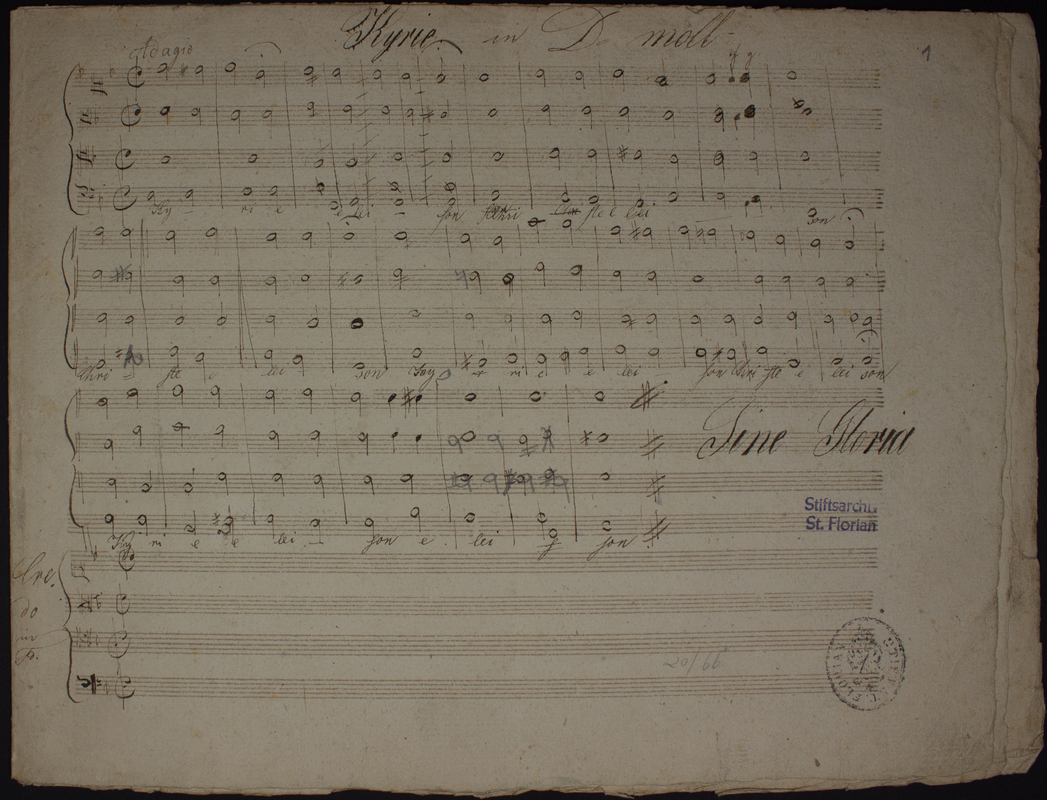 Kyrie in D moll
1
Adagio
Ky - ri e e lei - son Chri ste e lei son
Chri - ste e lei son Ky - ri e e lei - son Chri ste e lei son
Sine Gloria
Stiftsarchiv
St. Florian
Ky ri e e lei - son e lei son
Cre
do
in
20/66